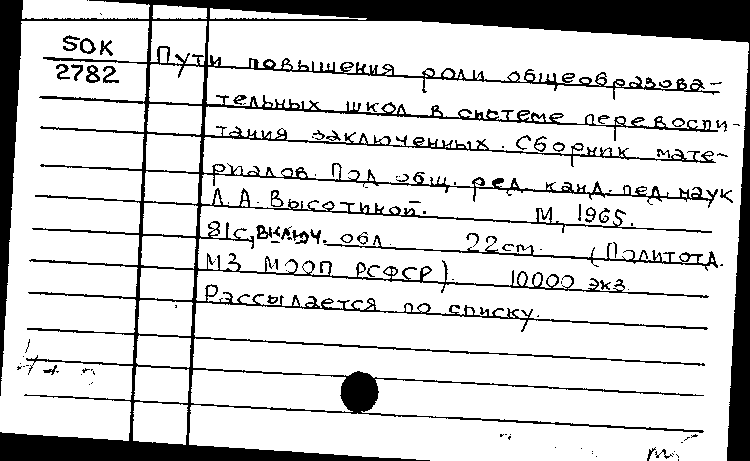 50К
2782
Пути повышения роли общеобразова-
тельных школ в системе перевоспи-
тания заключенных. Сборник мате-
риалов. Под общ. ред. канд. пед. наук
Л. А. Высотиной. М., 1965.
81с, включ. обл. 22cm. (Политотд.
МЗ МООП РСФСР). 10000 экз.
Рассылается по списку.